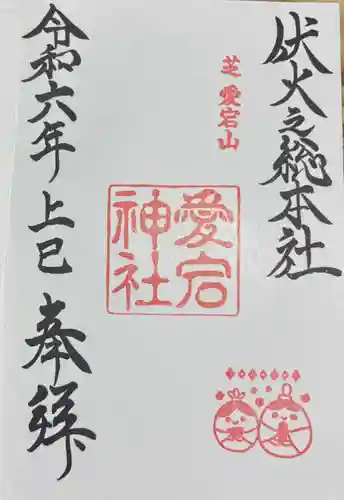 伏火之総本社
芝愛宕山
愛宕
神社
奉拝
令和六年上巳